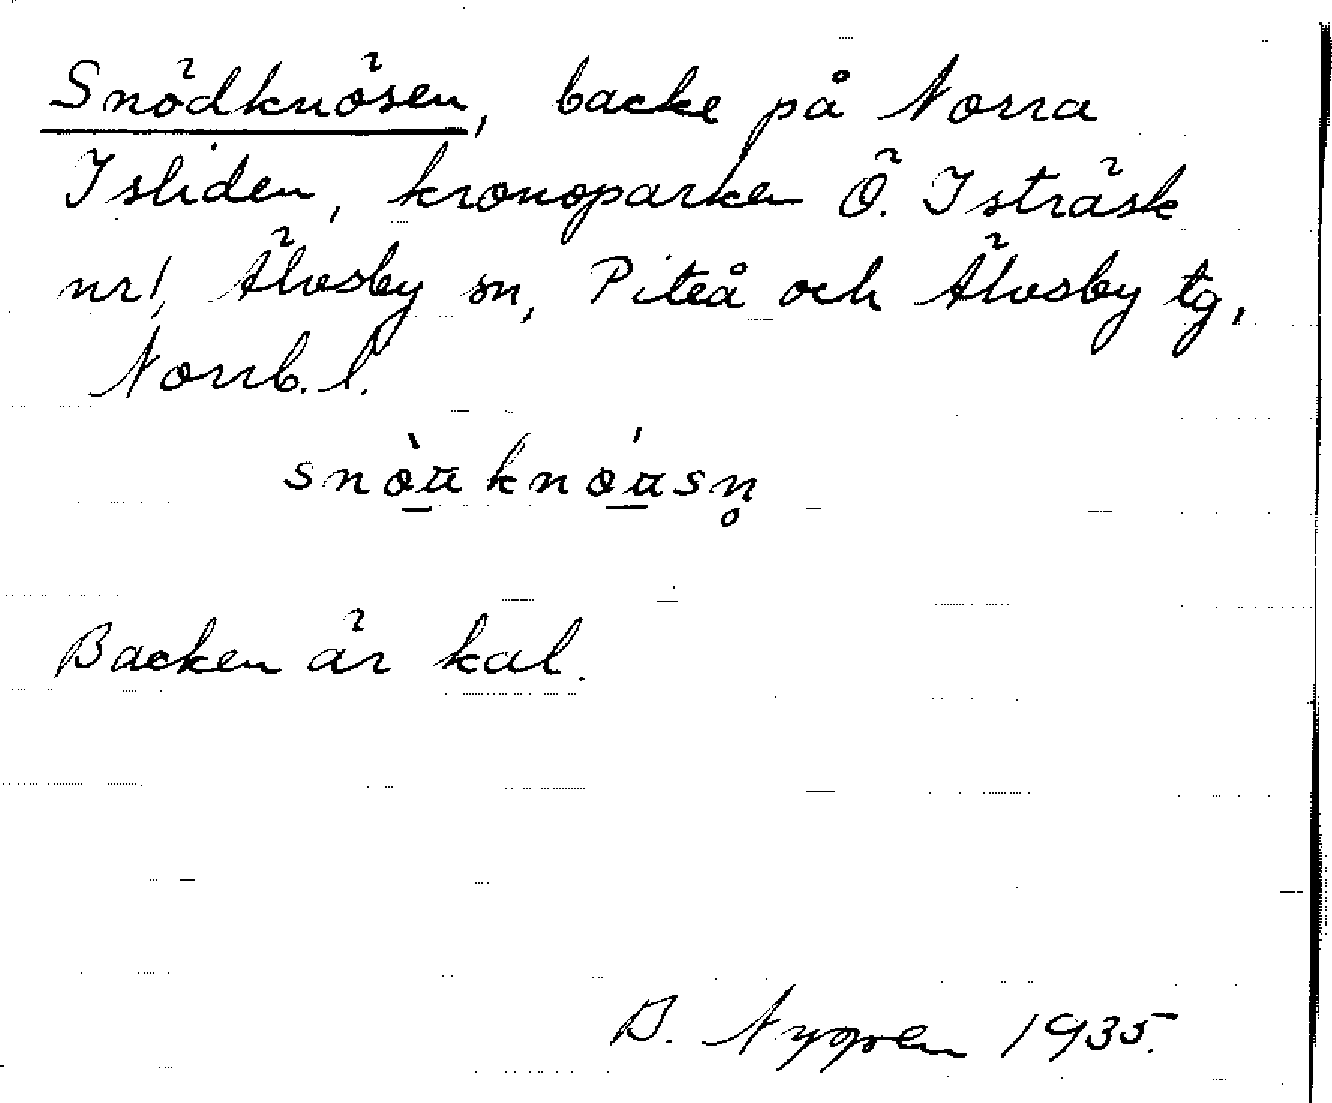 Snödknösen, backe på Norra
Isliden, kronoparken Ö. Isträsk
nr 1, Älvsby sn, Piteå och Älvsby tg,
Norrb. l.
Backen är kal.
B. Nygren 1935.